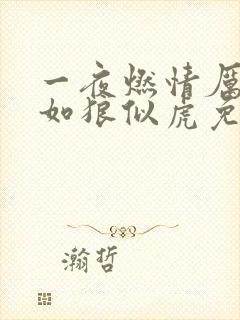 一夜燃情厲
如狼似虎免
瀚哲